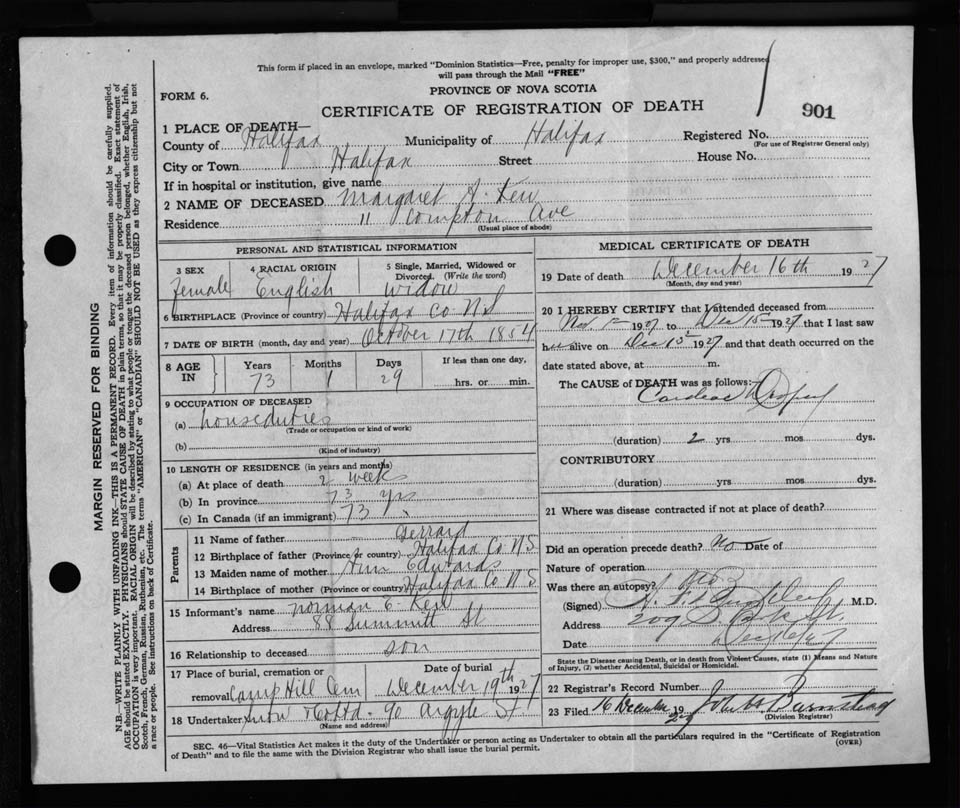 This form if placed in an envelope, marked "Dominion Statistics—Free, penalty for improper use, $300," and properly addressed
will pass through the Mail "FREE"
PROVINCE OF NOVA SCOTIA
FORM 6.
CERTIFICATE OF REGISTRATION OF DEATH
901
1 PLACE OF DEATH—
County of Halifax Municipality of Halifax Registered No.
(For use of Registrar General only)
City or Town Halifax Street House No.
If in hospital or institution, give name
2 NAME OF DECEASED Margaret A. Kew
Residence 11 Compton Ave
(Usual place of abode)
PERSONAL AND STATISTICAL INFORMATION
3 SEX 4 RACIAL ORIGIN 5 Single, Married, Widowed or
Divorced. (Write the word)
Female English Widow
6 BIRTHPLACE (Province or country) Halifax Co N.S
7 DATE OF BIRTH (month, day and year) October 17th 1854
8 AGE IN Years Months Days If less than one day,
73 1 29 hrs. or min.
9 OCCUPATION OF DECEASED
(a) houseduties
(Trade or occupation or kind of work)
(b)
(Kind of industry)
10 LENGTH OF RESIDENCE (in years and months)
(a) At place of death 2 weeks
(b) In province 73 yrs
(c) In Canada (if an immigrant) 73 "
Parents
11 Name of father Gerrard
12 Birthplace of father (Province or country) Halifax Co N S
13 Maiden name of mother Ann Edwards
14 Birthplace of mother (Province or country) Halifax Co N S
15 Informant's name Norman E. Kew
Address 88 Summitt St
16 Relationship to deceased son
17 Place of burial, cremation or Date of burial
removal Camp Hill Cem December 19th 1927
18 Undertaker Snow & Co Ltd - 90 Argyle St.
(Name and address)
MEDICAL CERTIFICATE OF DEATH
19 Date of death December 16th 1927
(Month, day and year)
20 I HEREBY CERTIFY that I attended deceased from
Nov 1 1927 to Dec 15 1927 that I last saw
her alive on Dec 15 1927 and that death occurred on the
date stated above, at m.
The CAUSE of DEATH was as follows:
Cardiac
(duration) 2 yrs mos dys.
CONTRIBUTORY
(duration) yrs. mos. dys.
21 Where was disease contracted if not at place of death?
Did an operation precede death? No Date of
Nature of operation
Was there an autopsy?
(Signed) M.D.
Address 209 S. Park St.
Date Dec
State the Disease causing Death, or in death from Violent Causes, state (1) Means and Nature
of Injury, (2) whether Accidental, Suicidal or Homicidal.
22 Registrar's Record Number
23 Filed 16 December 1927 John Burnstead
(Division Registrar)
SEC. 46—Vital Statistics Act makes it the duty of the Undertaker or person acting as Undertaker to obtain all the particulars required in the "Certificate of Registration
of Death" and to file the same with the Division Registrar who shall issue the burial permit.
(OVER)
MARGIN RESERVED FOR BINDING
N.B.—WRITE PLAINLY WITH UNFADING INK—THIS IS A PERMANENT RECORD. Every item of information should be carefully supplied.
AGE should be stated EXACTLY. PHYSICIANS should STATE CAUSE OF DEATH in plain terms, so that it may be properly classified. Exact statement of
OCCUPATION is very important. RACIAL ORIGIN will be described by stating to what people or tongue the deceased person belonged, whether English, Irish,
Scotch, French, German, Russian, Ruthenian, etc. The terms "AMERICAN" or "CANADIAN" SHOULD NOT BE USED as they express citizenship but not
a race or people. See instructions on back of Certificate.